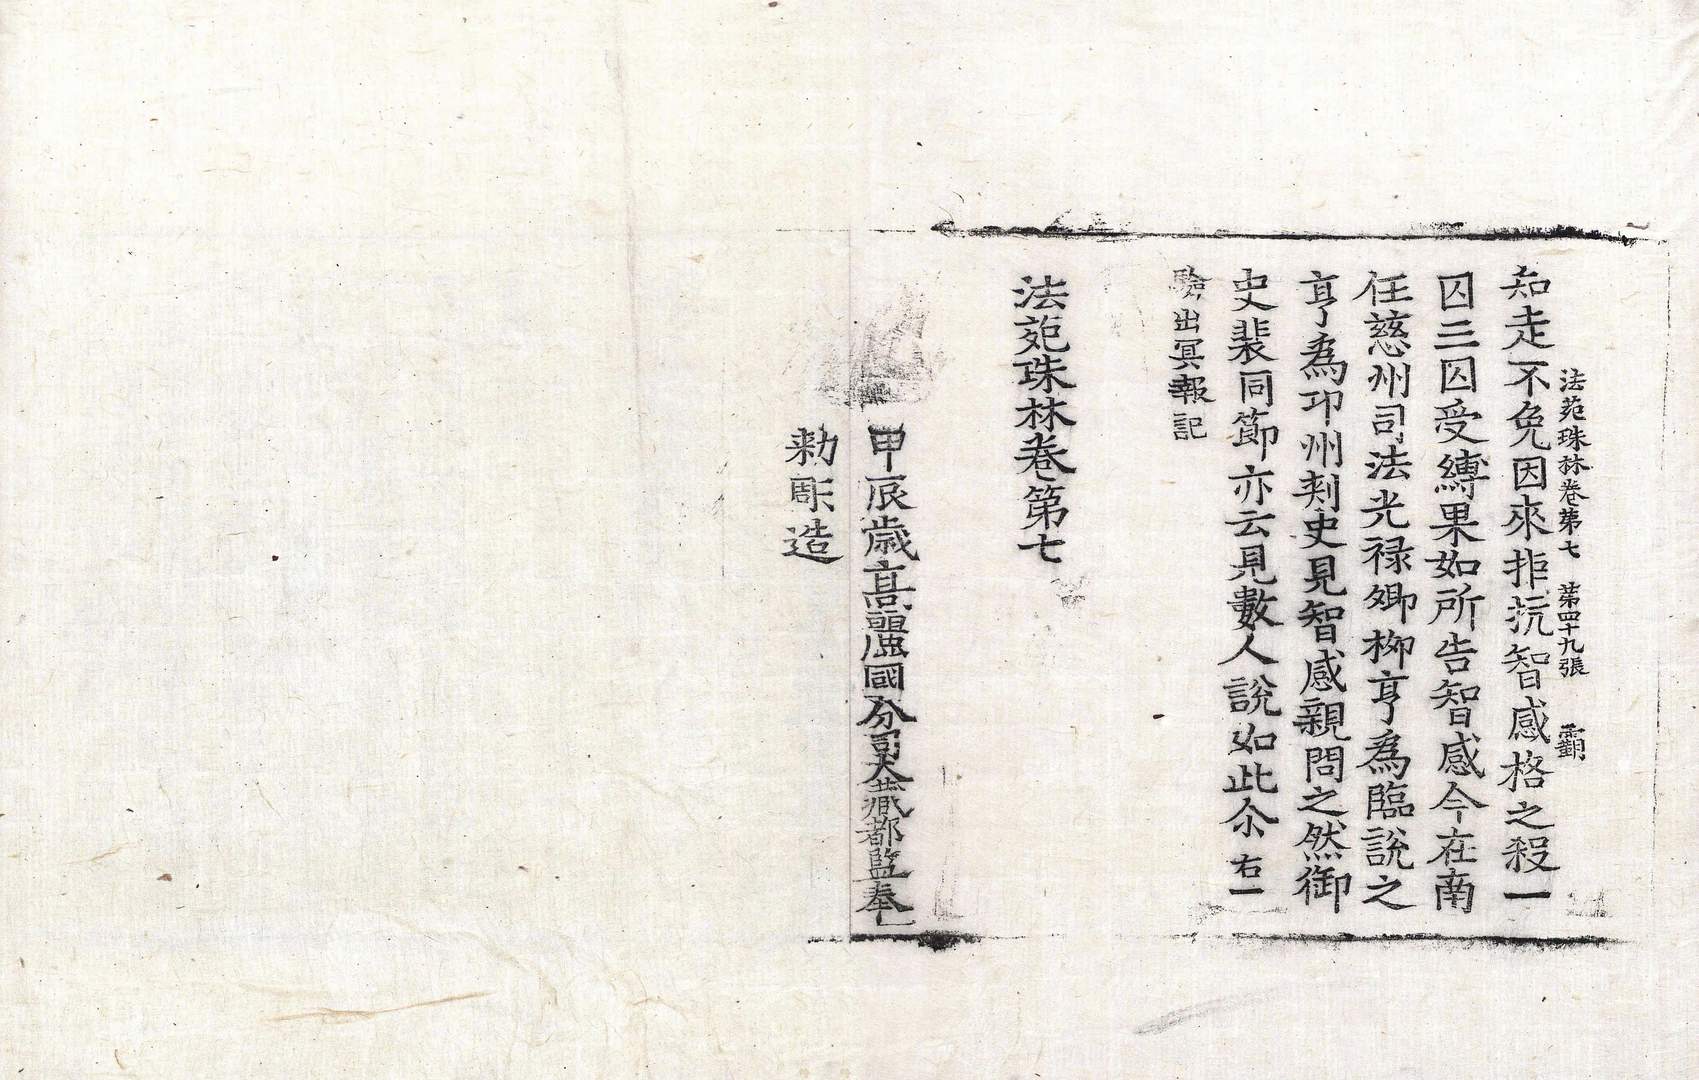 法苑珠林卷第七 第四十九張 霸
知走不免因來拒抗智感格之殺一
囚三囚受縛果如所告智感今在南
任慈州司法光祿卿柳亨爲臨說之
亨爲卭州刾史見智感親問之然御
史裴同節亦云見數人說如此尒 右一
驗出冥報記
法苑珠林卷第七
甲辰歲高麗國分司大藏都監奉
勑彫造